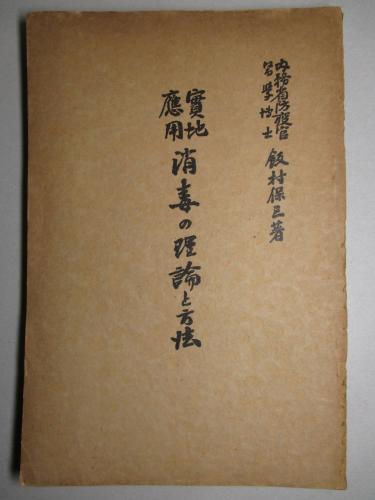 内務省防疫官
医学博士
飯村保三著
實地
應用
消毒の理論と方法